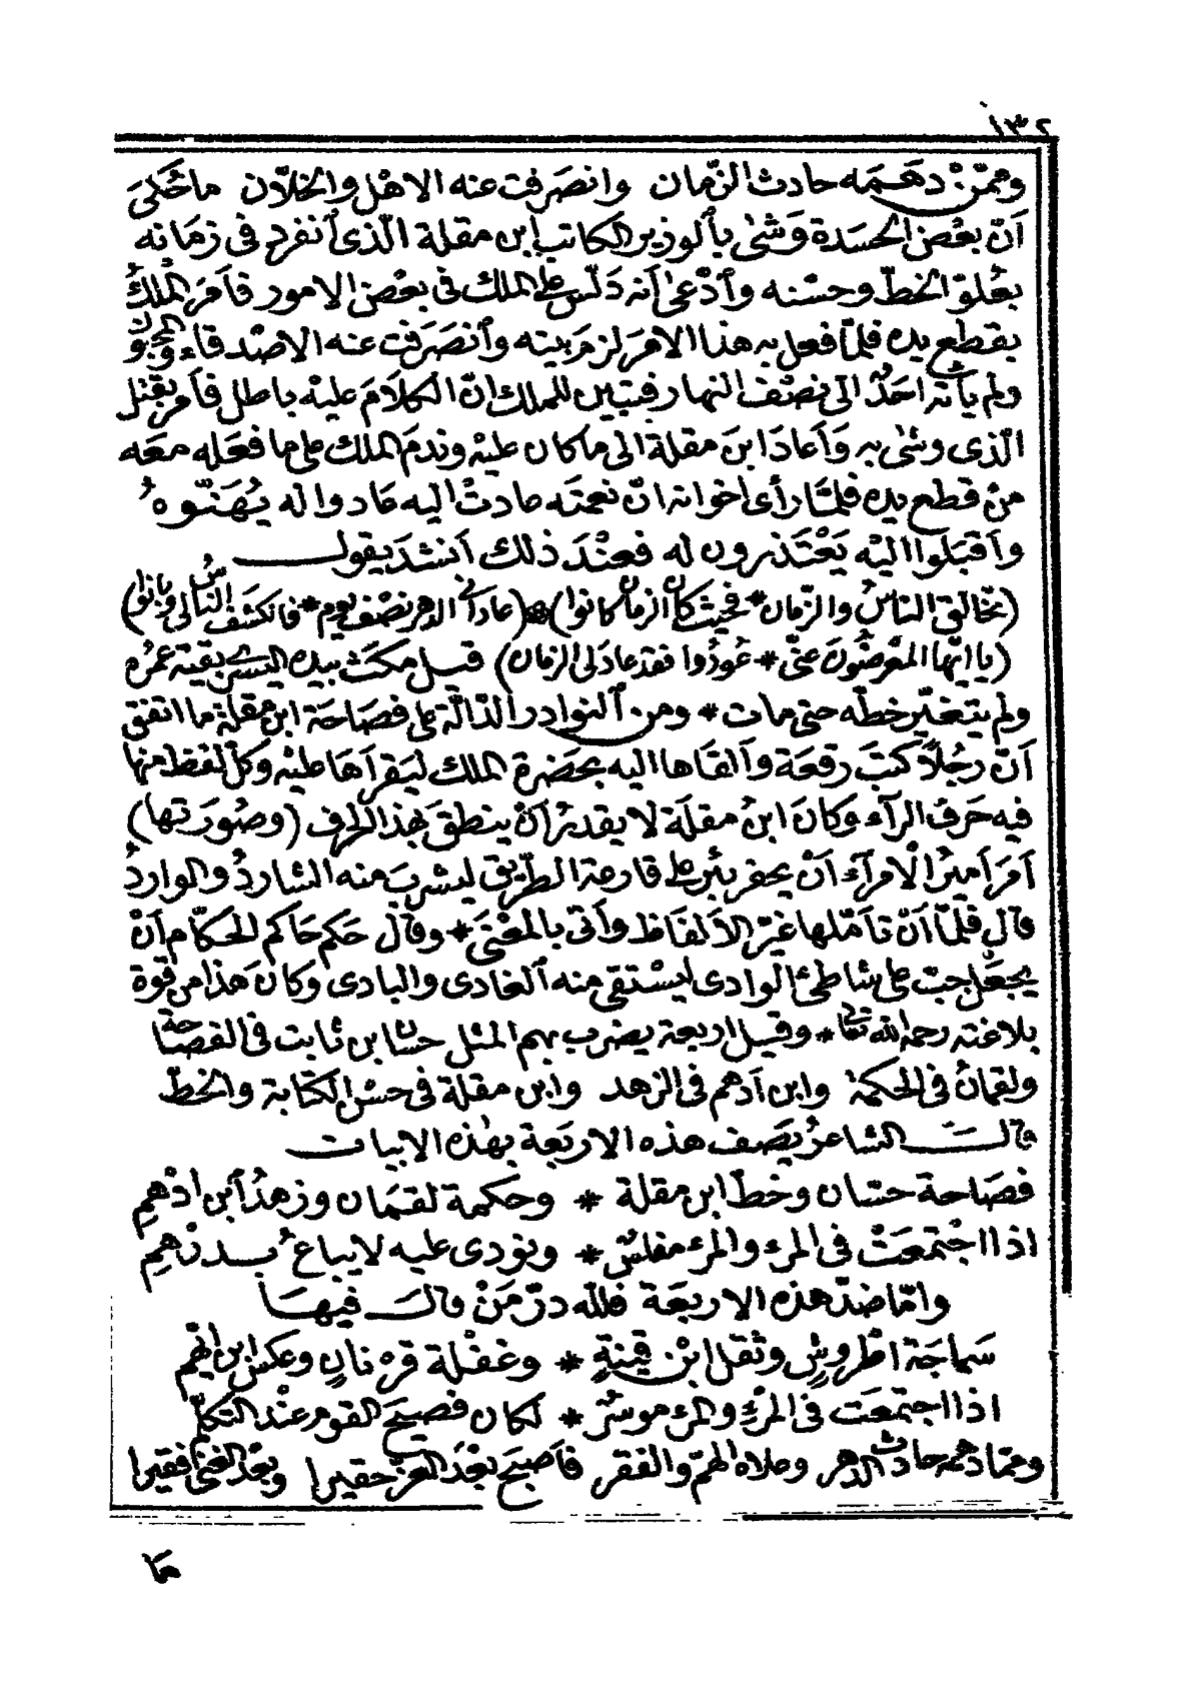 ١٣٢
وممّن دهمه حادث الزمان وانصرفت عنه الاهل والخلّان ما حُكىَ
أنّ بعض الحسدة وَشىٰ بالوزير الكاتب ابن مقلة الّذى أنفرد فى زمانه
بعُلوّ الخطّ وحسْنه وأدْعىٰ أنه دَلّس على الملك فى بعْض الامور فأمَرَ الملكُ
بقطع يده فلمّا فعل به هذا الامرَ لزمَ بيته وأنصَرَفت عنه الاصْدقاء والمحبّون
ولم يأته احَدٌ الى نصْف النهار فتبين للملك انّ الكلاَمَ عليْه باطل فأمرَ بقتل
الّذى وشى به وَأعادَ ابنَ مقلة الى ما كان عليْه وندمَ الملك على ما فعَله معَه
منْ قطع يده فلمّا رأى اخوانه انّ نعمتَه عادتْ اليه عادوا له يُهَنّوهُ
وأقبَلوا اليْه يَعْتَذرون له فعنْدَ ذلك أنشدَ يقول
(تخالق الناسُ والزّمان * فحيث كان الزمان كانوا) (عادانى الدهر نصْف يوم * فانكشف الناس لى وبانوا)
(يا ايّها المعْرضُونَ عنّى * عُودُوا فقد عاد لى الزمان) قيل مكث بيده اليسرى بقية عمُره
ولم يتغيّر خطّه حتى مات * ومن النوادر الدّالّة على فصَاحَة ابن مقلة ما اتفق
أنّ رجُلاً كتبَ رقعَة وألقَاها اليه بحَضرة الملك ليَقرأهَا عليْه وكلّ لفظ منها
فيه حَرفُ الرآء وكانَ ابنُ مقلَة لا يقدرُ أنْ ينطقَ بهذا الحرف (وصُورَتها)
أمَرَ أميرُ الأمرآء أنْ يحفر بئر على قارعة الطّريق ليشربَ منه الشاردُ والواردُ
قال فلمّا أنْ تأمّلها غيّر الألفَاظ وأتى بالمعْنَى * وقال حَكم حَاكم الحكّام أنْ
يجعَل جبّ على شاطئ الوادى ليسْتقى منه ألغادى والبادى وكانَ هَذا من قوّة
بلاغته رحمه الله تعالى * وقيل اربعة يضرب بهم المثل حسّان ابن ثابت فى الفصَاحة
ولقمانُ فى الحكمة وابن أدهم فى الزهد وابن مقلة فى حسْن الكتابة والخطّ
قالَ الشاعرُ يَصَف هذه الاربَعة بهٰذه الابيات
فصَاحة حسّان وخطّ ابن مقلة * وحكمة لقمَان وزهدُ أبن ادْهمِ
اذا اجْتمعَتْ فى المرء والمرء مفلسٌ * ونودى عليه لا يباعُ بدرْهمِ
وامّا ضدّ هذه الاربعَة فلله درّ مَنْ قالَ فيهَا
سَماجَة اطْروشٍ وثقل ابْن قينةٍ * وغفْلة قرْ نانٍ وعكس ابن ايْهمِ
اذا اجتمعَت فى المرْءِ والمرء موسرٌ * لكان فصيحَ القوم عنْد التكلّمِ
وممّا دهمه حادث الدهر وعلاه الهمّ والفقر فأصبحَ بعْدَ العزّ حقيرا وبعْدَ الغنى فقيرا
ما